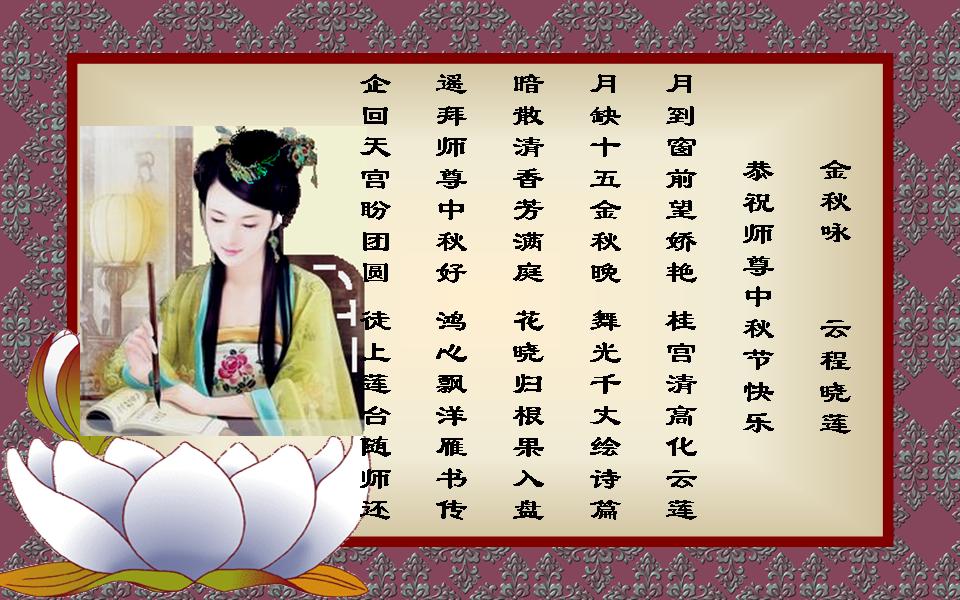 金秋咏 云程晓莲
恭祝师尊中秋节快乐
月到窗前望娇艳 桂宫清高化云莲
月缺十五金秋晚 舞光千丈绘诗篇
暗散清香芳满庭 花晓归根果入盘
遥拜师尊中秋好 鸿心飘洋雁书传
企回天宫盼团圆 徒上莲台随师还